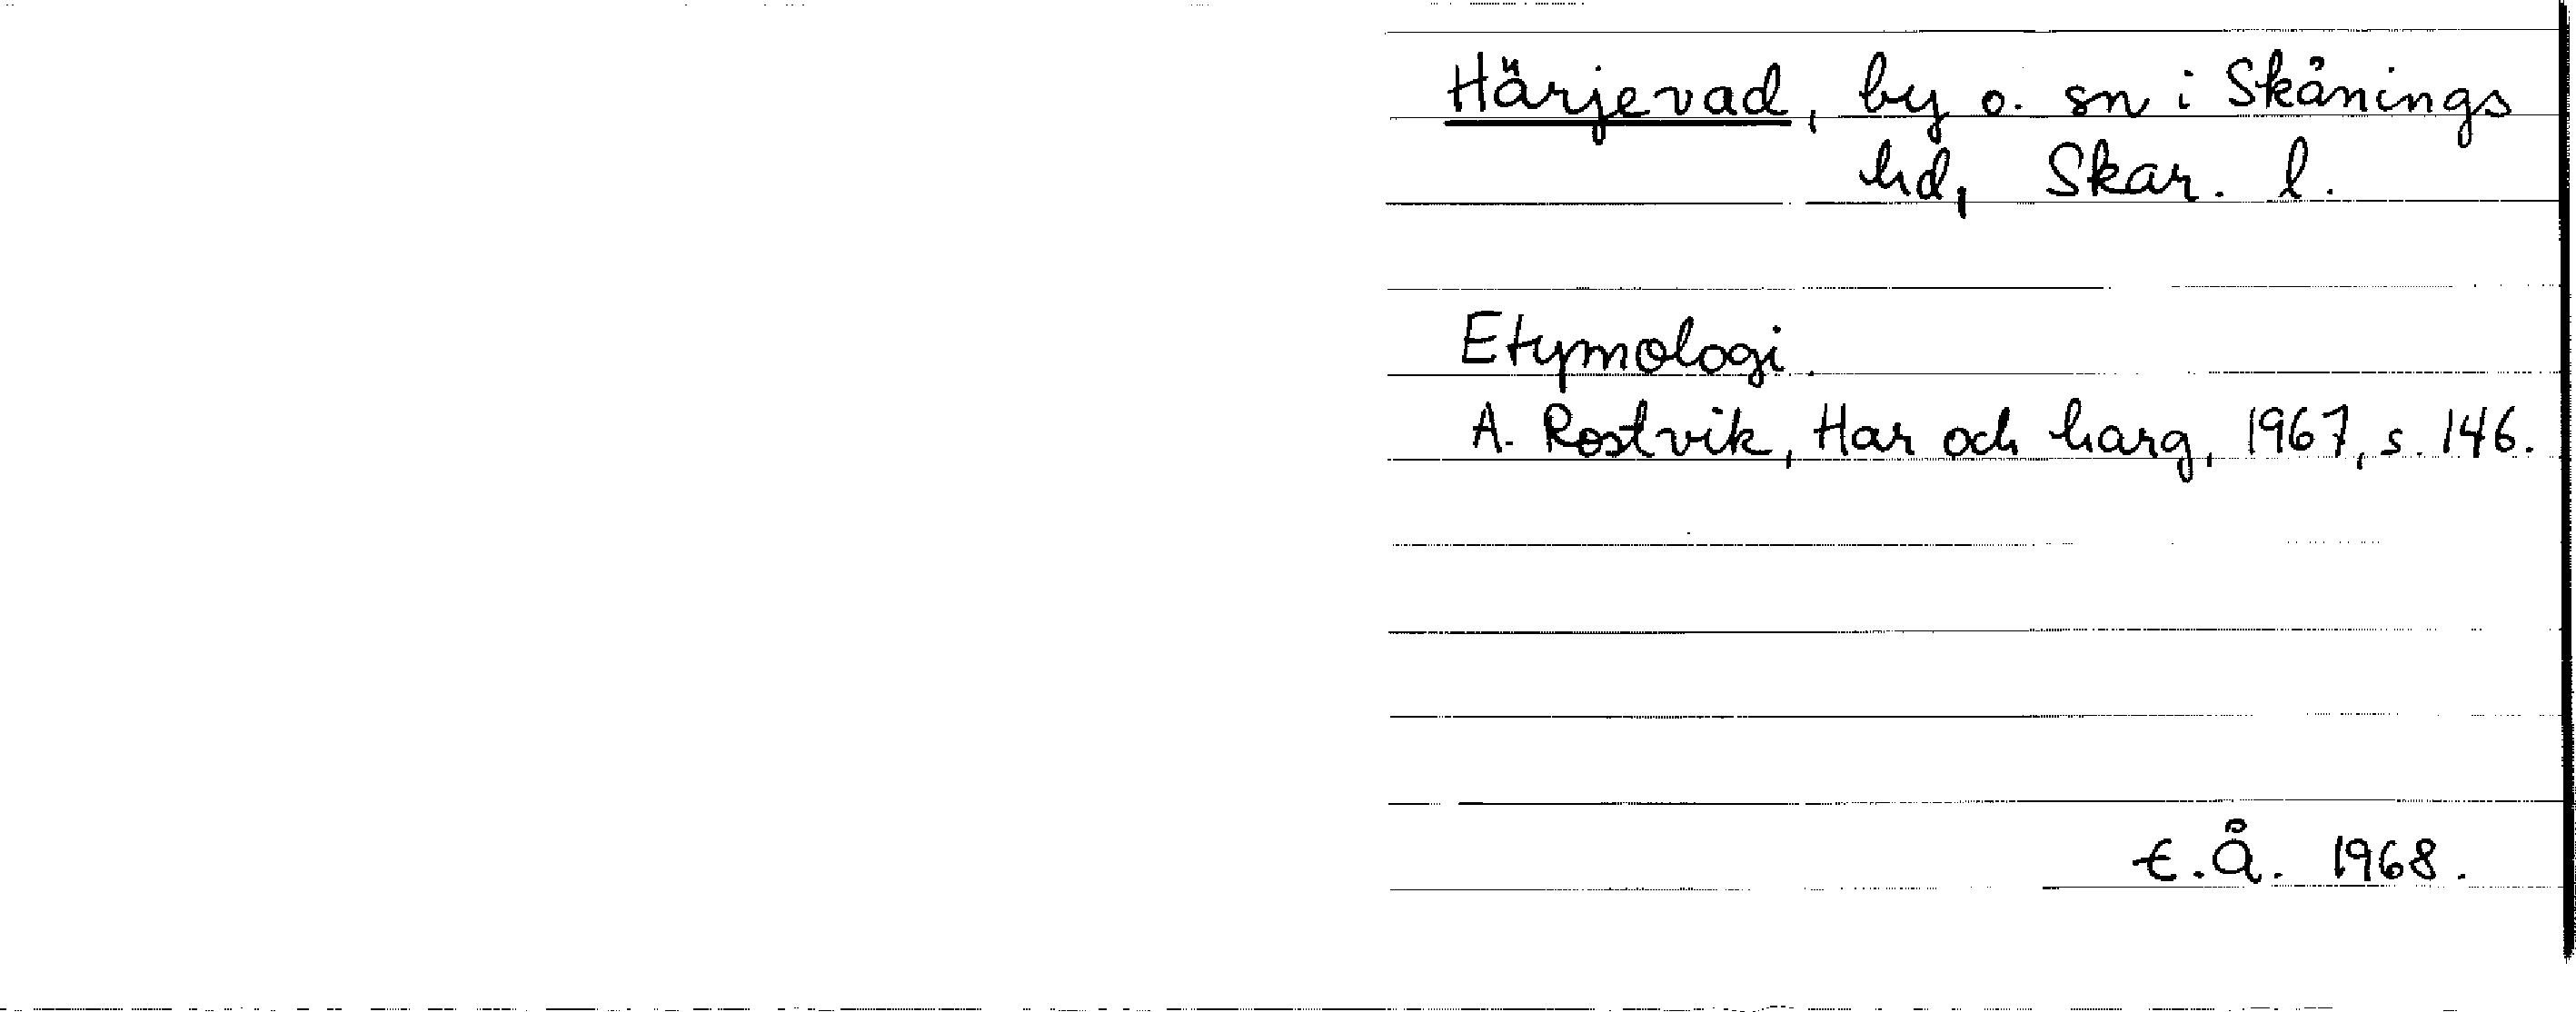 Härjevad, by o. sn i Skånings
hd, Skar. l.
Etymologi.
A. Rostvik, Har och harg, 1967, s. 146.
E.Å. 1968.